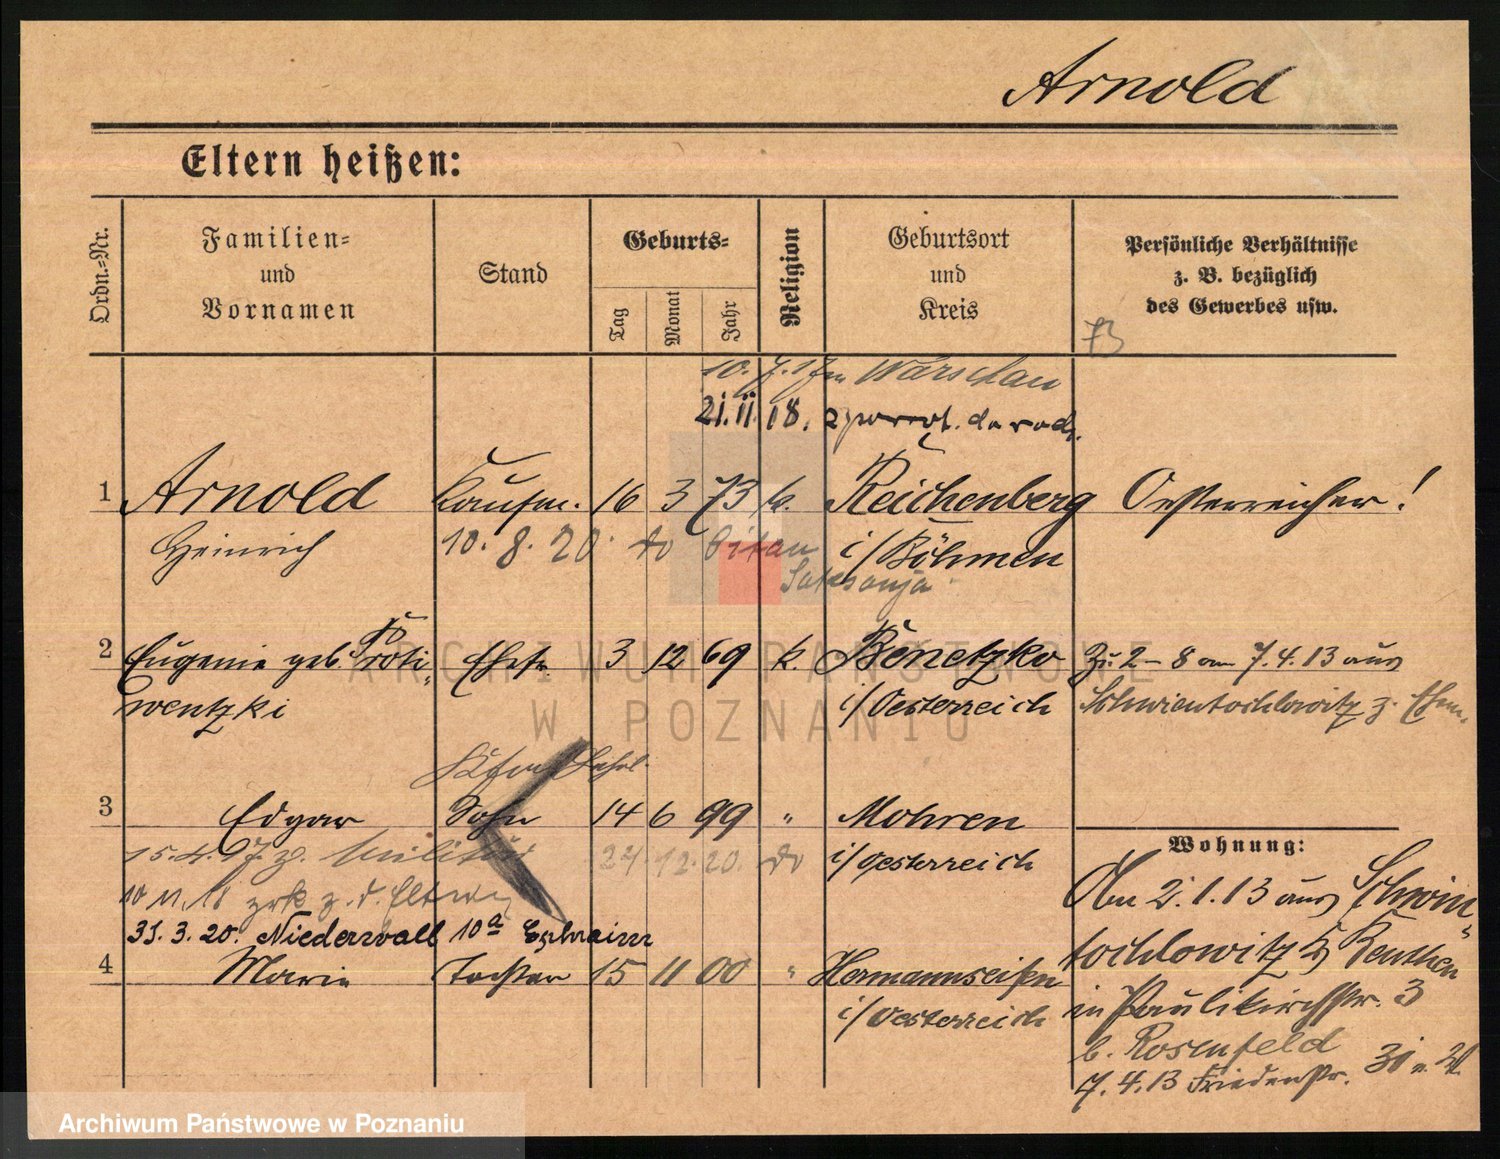 Arnold
Eltern heißen:
Ordn.-Nr.
Familien-
und
Vornamen
Stand
Geburts-
Tag
Monat
Jahr
Religion
Geburtsort
und
Kreis
Persönliche Verhältnisse
z. B. bezüglich
des Gewerbes usw.
73
10. 7. 17 Warschau
21. 11. 18.
1 Arnold Kaufm. 16 3 73 k. Reichenberg Oesterreicher!
Heinrich 10. 8. 20. do i/Böhmen
2 Eugenie geb. Proti- Ehefr. 3 12 69 k. Benetzko Zu 2-8 am 7.4.13 aus
wentzki i/Oesterreich Schwientochlowitz z. Ehem.
3 Edgar Sohn 14 6 99 " Mohren
15.4.17 z. Militär 24. 12. 20. do i/Oesterreich
Wohnung:
31. 3. 20. Niederwall 10a Ephraim
4 Marie Tochter 15 11 00 " Hermannseifen
i/Oesterreich
Am 2.1.13 aus Schwien-
tochlowitz Kr. Beuthen
in Paulikirchstr. 3
b. Rosenfeld
7.4.13 Friedenstr.
ARCHIWUM PAŃSTWOWE
W POZNANIU
Archiwum Państwowe w Poznaniu